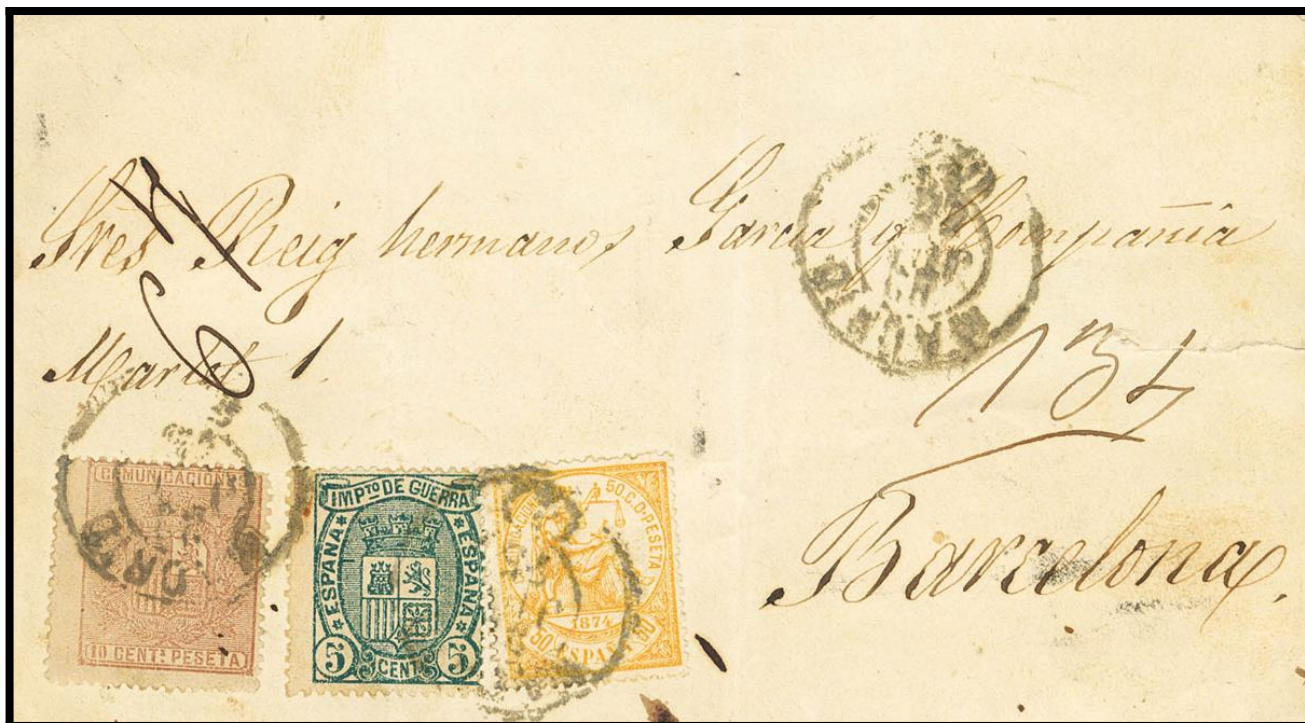 Sres Reig hermanos Garcia y Compañia
Marlet 1.
134
Barcelona.
COMUNICACIONES
10 CENT. PESETA
IMPTO DE GUERRA
ESPAÑA ESPAÑA
5 CENT. 5
50 C. D PESETA
1874
50 ESPAÑA